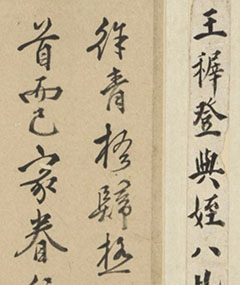 王穉登與姪八
徐青梧歸極
首而已家眷